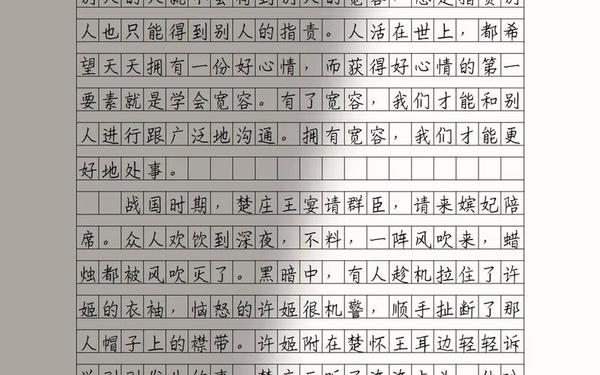 人也只能得到别人的指责。人活在世上，都希
望天天拥有一份好心情，而获得好心情的第一
要素就是学会宽容。有了宽容，我们才能和别
人进行跟广泛地沟通。拥有宽容，我们才能更
好地处事。
战国时期，楚庄王宴请群臣，请来嫔妃陪
席。众人欢饮到深夜，不料，一阵风吹来，蜡
烛都被风吹灭了。黑暗中，有人趁机拉住了许
姬的衣袖，恼怒的许姬很机警，顺手扯断了那
人帽子上的襟带。许姬附在楚怀王耳边轻轻诉